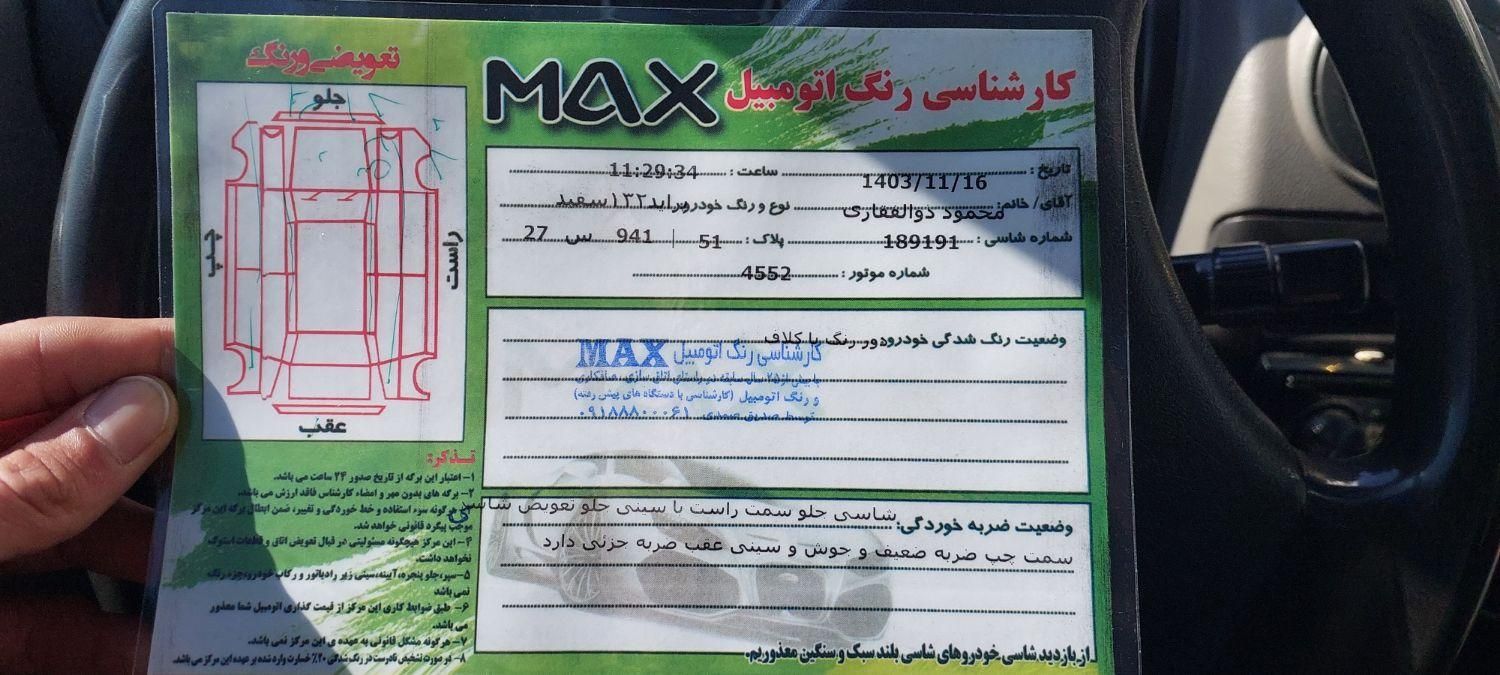 کارشناسی رنگ اتومبیل MAX
تعویضی و رنگ
جلو
چپ
راست
عقب
تاریخ : 1403/11/16 ساعت : 11:29:34
آقای/ خانم: محمود ذوالفقاری نوع و رنگ خودرو: پراید۱۳۲سفید
شماره شاسی : 189191 پلاک : 51 | 941 س 27
شماره موتور : 4552
وضعیت رنگ شدگی خودرو: دور رنگ با کلاف
کارشناسی رنگ اتومبیل MAX
با بیش از ۲۵ سال سابقه در راستای اتاق سازی، صافکاری
و رنگ اتومبیل (کارشناسی با دستگاه های پیش رفته)
توسط صدیق صمدی ۰۹۱۸۸۸۰۰۰۶۱
وضعیت ضربه خوردگی: شاسی جلو سمت راست با سینی جلو تعویض شاسی
سمت چپ ضربه ضعیف و جوش و سینی عقب ضربه جزئی دارد
از بازدید شاسی خودروهای شاسی بلند سبک و سنگین معذوریم.
تذکر:
۱- اعتبار این برگه از تاریخ صدور ۲۴ ساعت می باشد.
۲- برگه های بدون مهر و امضاء کارشناس فاقد ارزش می باشد.
هرگونه سوء استفاده و خط خوردگی و تغییر، ضمن ابطال برگه این مرکز
موجب پیگرد قانونی خواهد شد.
۴- این مرکز هیچگونه مسئولیتی در قبال تعویض اتاق و قطعات استوک
نخواهد داشت.
۵- سپر، جلو پنجره، آیینه، سینی زیر رادیاتور و رکاب خودرو، جزء رنگ
نمی باشد
۶- طبق ضوابط کاری این مرکز از قیمت گذاری اتومبیل شما معذور
می باشد.
۷- هرگونه مشکل قانونی به عهده ی این مرکز نمی باشد.
۸- در صورت تشخیص نادرست در رنگ شدگی ۲۰٪ خسارت وارد شده بر عهده این مرکز می باشد.